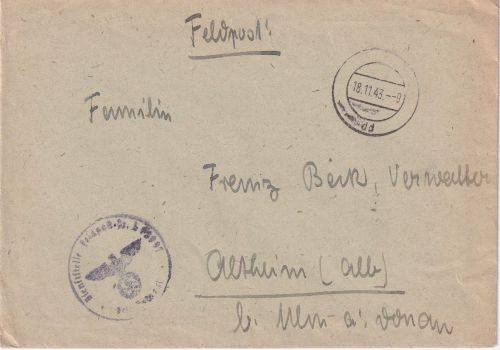 Feldpost!
18.11.43.--9
Familie
Franz Beck, Verwalter
Dienststelle Feldpost-Nr.
Altheim (Alb)
b. Ulm a. Donau